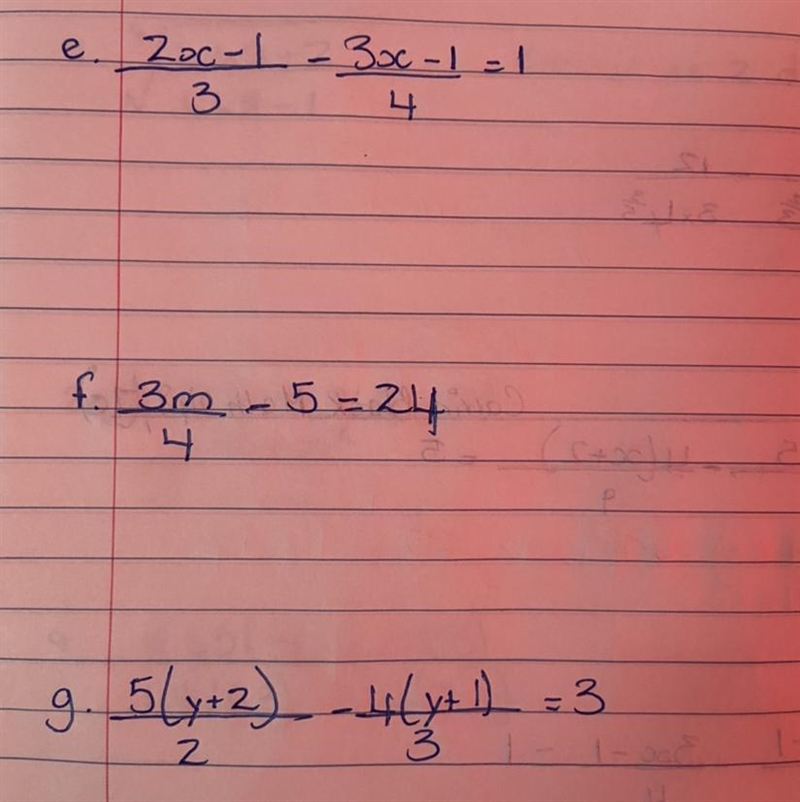 e. 2x-1/3 - 3x-1/4 = 1
f. 3m/4 - 5 = 24
g. 5(y+2)/2 - 4(y+1)/3 = 3